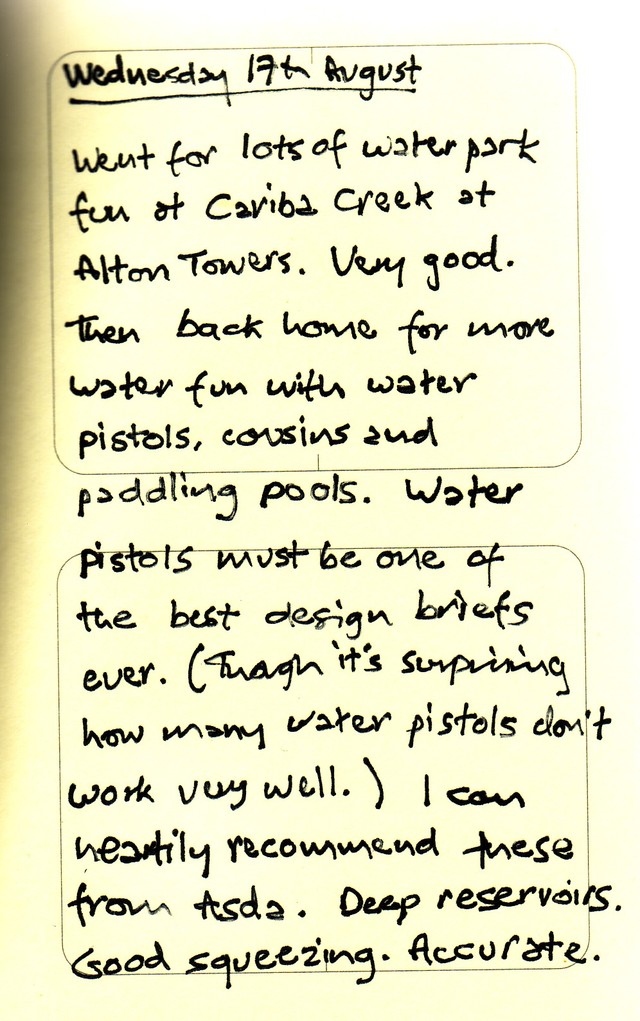 Wednesday 17th August
Went for lots of water park
fun at Cariba Creek at
Alton Towers. Very good.
Then back home for more
water fun with water
pistols, cousins and
paddling pools. Water
pistols must be one of
the best design briefs
ever. (Though it's surprising
how many water pistols don't
work very well.) I can
heartily recommend these
from Asda. Deep reservoirs.
Good squeezing. Accurate.